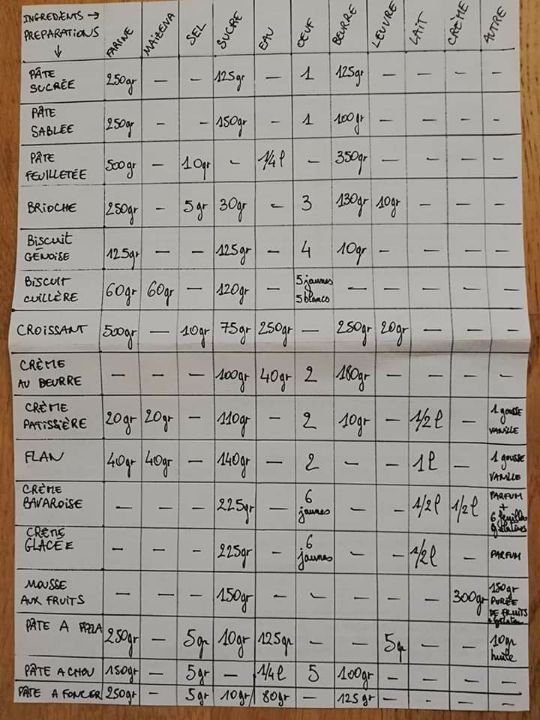 INGREDIENTS → FARINE MAÏZENA SEL SUCRE EAU OEUF BEURRE LEVURE LAIT CRÈME AUTRE
PREPARATIONS ↓
PÂTE SUCRÉE 250gr — — 125gr — 1 125gr — — — —
PÂTE SABLEE 250gr — — 150gr — 1 100gr — — — —
PÂTE FEUILLETÉE 500gr — 10gr — 1/4 l — 350gr — — — —
BRIOCHE 250gr — 5gr 30gr — 3 130gr 10gr — — —
BISCUIT GÉNOISE 125gr — — 125gr — 4 10gr — — — —
BISCUIT CUILLÈRE 60gr 60gr — 120gr — 5 jaunes 5 blancs — — — — —
CROISSANT 500gr — 10gr 75gr 250gr — 250gr 20gr — — —
CRÈME AU BEURRE — — — 100gr 40gr 2 180gr — — — —
CRÈME PATISSIÈRE 20gr 20gr — 110gr — 2 10gr — 1/2 l — 1 gousse VANILLE
FLAN 40gr 40gr — 140gr — 2 — — 1 l — 1 gousse VANILLE
CRÈME BAVAROISE — — — 225gr — 6 jaunes — — 1/2 l 1/2 l PARFUM + 6 feuilles
CRÈME GLACÉE — — — 225gr — 6 jaunes — — 1/2 l — PARFUM
MOUSSE AUX FRUITS — — — 150gr — — — — — 300gr 150gr PURÉE DE FRUITS
PÂTE A PIZZA 250gr — 5gr 10gr 125gr — — 5gr — — 10gr huile
PÂTE A CHOU 150gr — 5gr — 1/4 l 5 100gr — — — —
PÂTE A FONCER 250gr — 5gr 10gr 80gr — 125gr — — — —